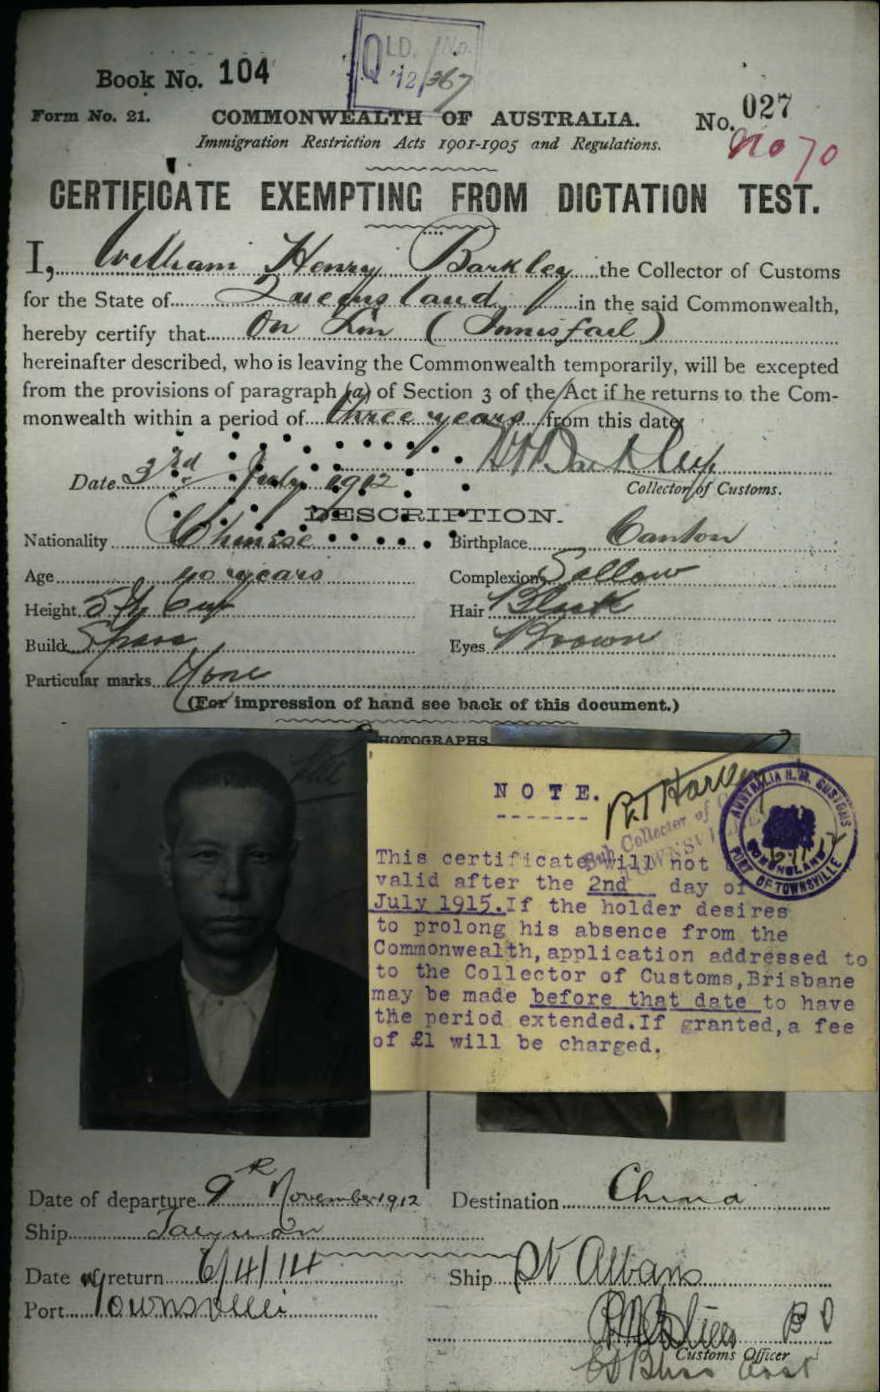 QLD. No.
'12/367
Book No. 104
Form No. 21.
COMMONWEALTH OF AUSTRALIA.
No. 027
No 70
Immigration Restriction Acts 1901-1905 and Regulations.
CERTIFICATE EXEMPTING FROM DICTATION TEST.
I, William Henry Barkley the Collector of Customs
for the State of Queensland in the said Commonwealth,
hereby certify that On Lin (Innisfail)
hereinafter described, who is leaving the Commonwealth temporarily, will be excepted
from the provisions of paragraph (a) of Section 3 of the Act if he returns to the Com-
monwealth within a period of three years from this date.
WH Barkley
Date 3rd July 1912
Collector of Customs.
DESCRIPTION.
Nationality Chinese Birthplace Canton
Age 40 years Complexion Sallow
Height 5 ft 6 in Hair Black
Build Spare Eyes Brown
Particular marks None
(For impression of hand see back of this document.)
PHOTOGRAPHS
NOTE.
Sub Collector of
TOWNSVILLE
AUSTRALIA H.M. CUSTOMS
QUEENSLAND
PORT OF TOWNSVILLE
This certificate will not
valid after the 2nd day of
July 1915. If the holder desires
to prolong his absence from the
Commonwealth, application addressed to
to the Collector of Customs, Brisbane
may be made before that date to have
the period extended. If granted, a fee
of £1 will be charged.
Date of departure 9th November 1912 Destination China
Ship Taiyuan
Date of return 6/4/14 Ship St Albans
Port Townsville
Customs Officer